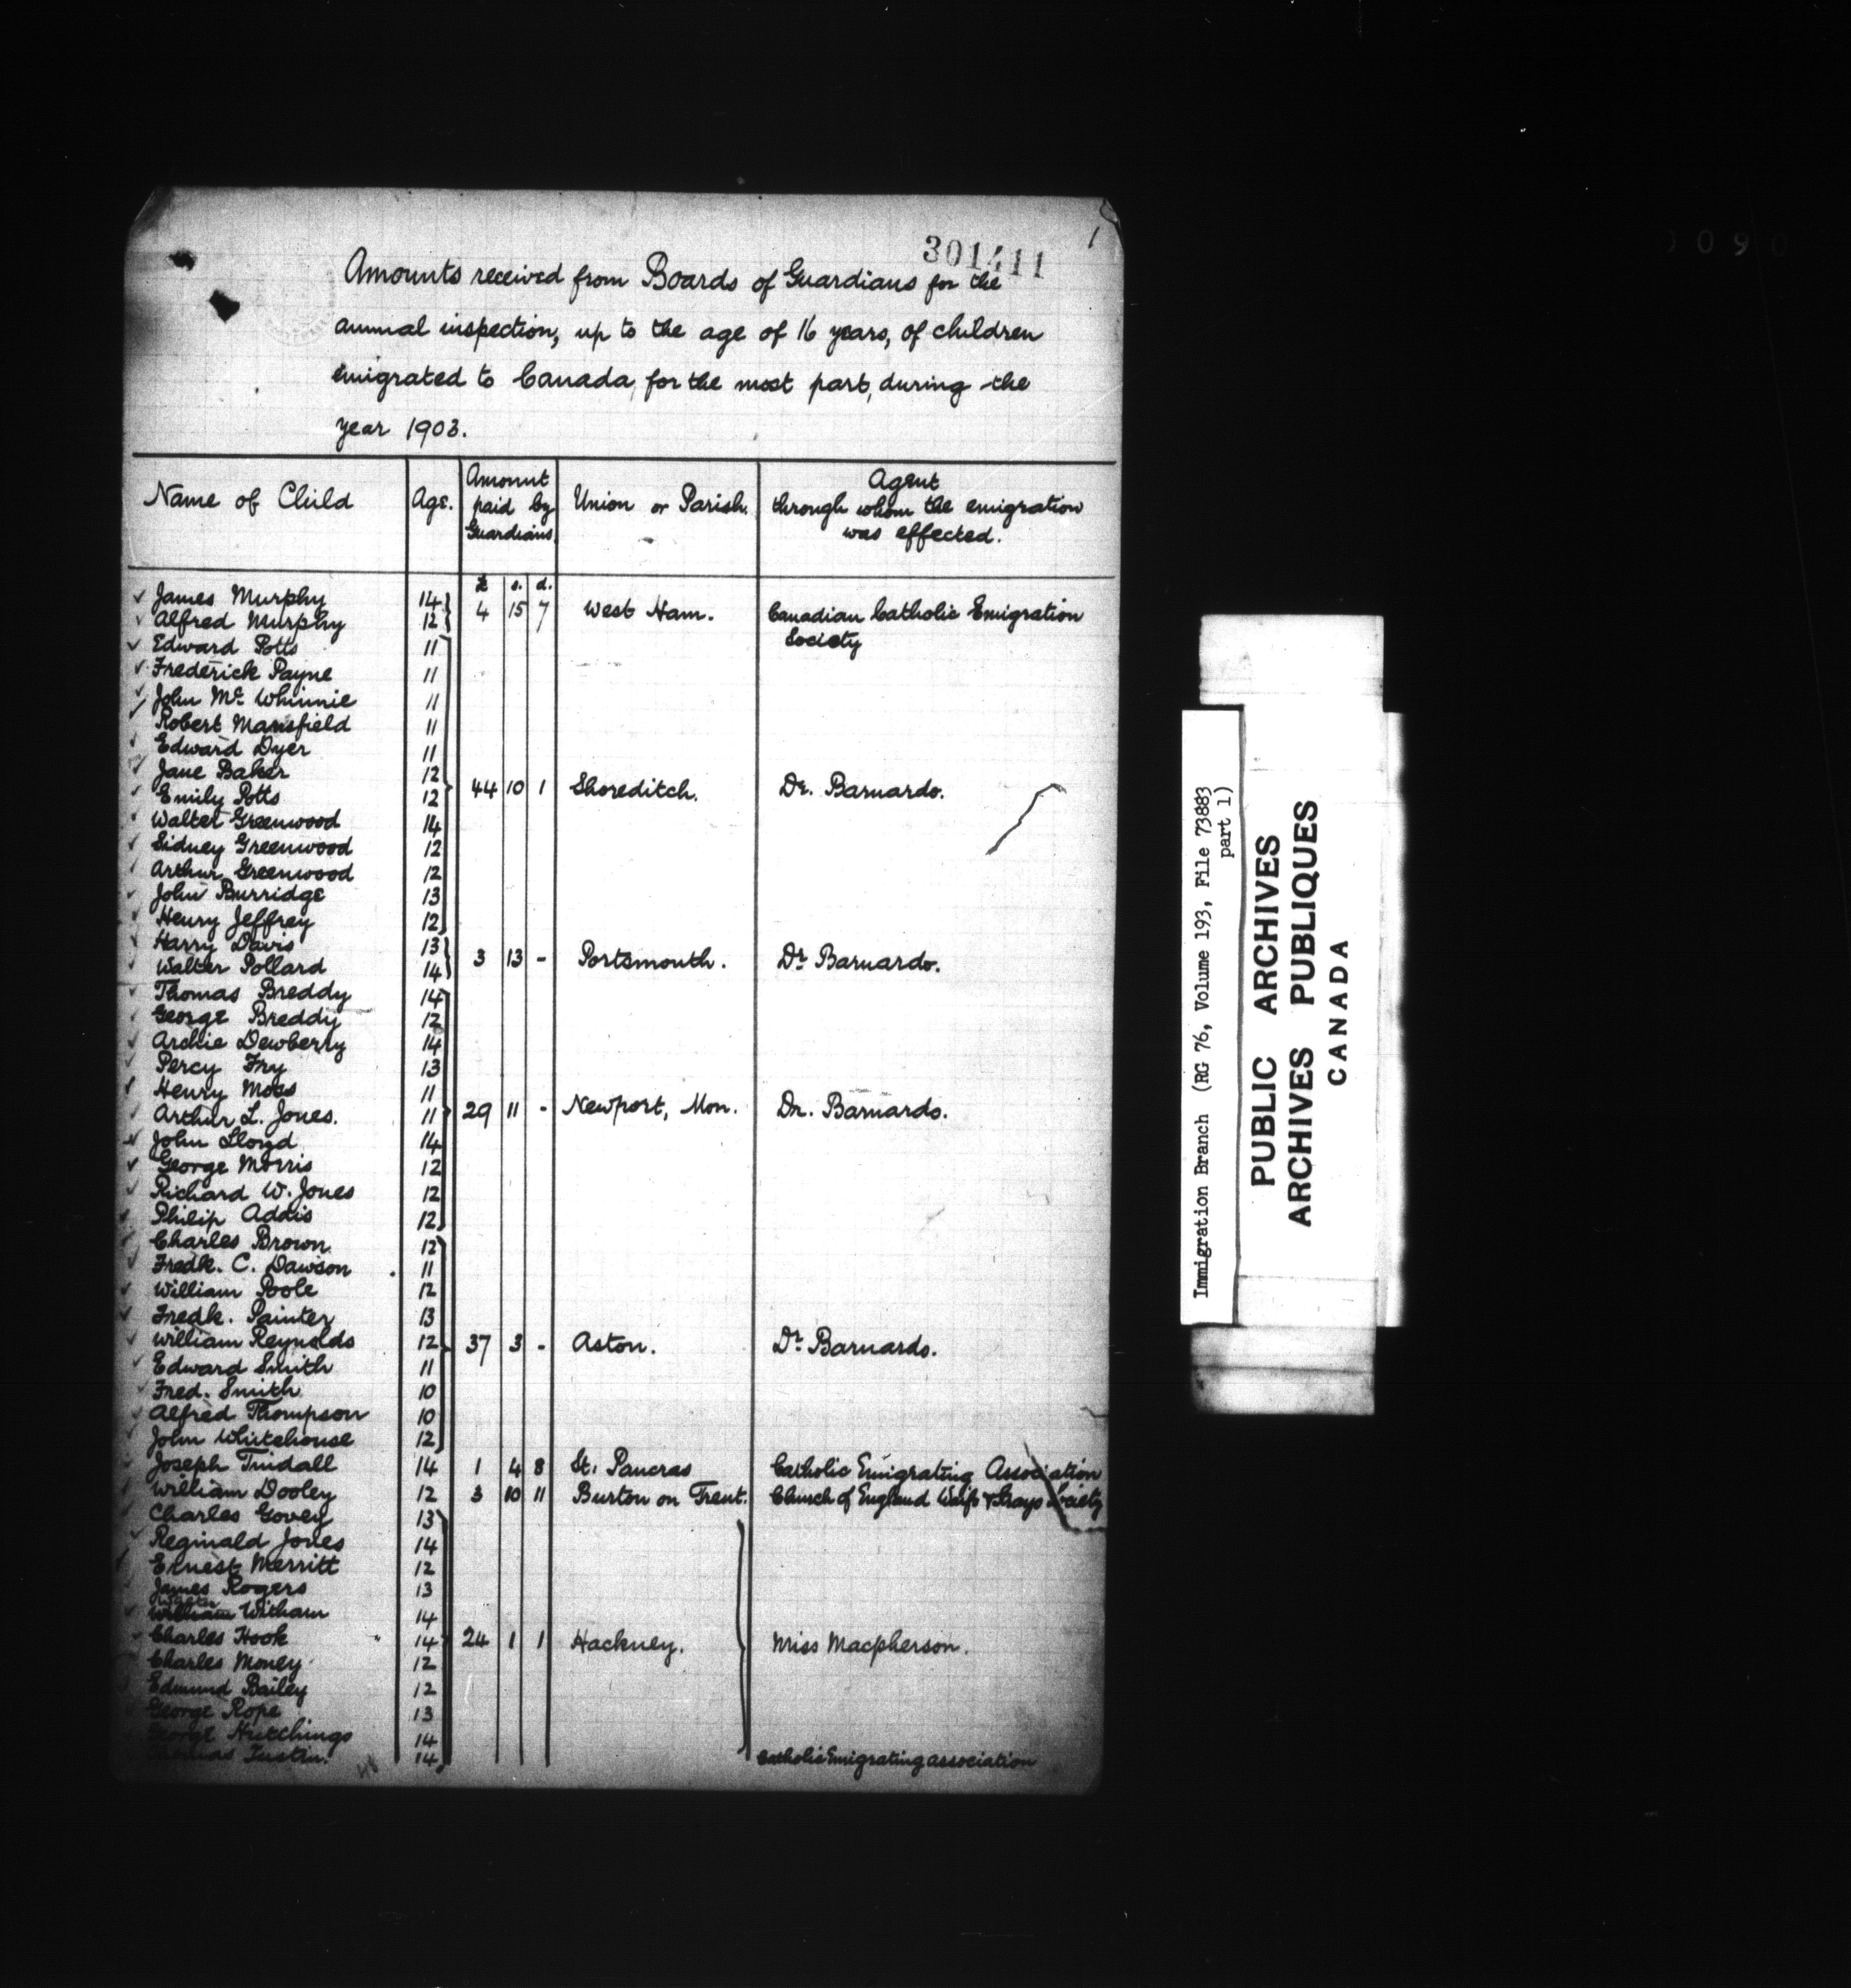 301411
1
Amounts received from Boards of Guardians for the
annual inspection, up to the age of 16 years, of children
emigrated to Canada, for the most part, during the
year 1903.
Name of Child Age. Amount paid by Guardians Union or Parish. Agent through whom the emigration was effected.
£ s. d.
James Murphy 14
Alfred Murphy 12 4 15 7 West Ham. Canadian Catholic Emigration Society
Edward Potts 11
Frederick Payne 11
John Mc Whinnie 11
Robert Mansfield 11
Edward Dyer 11
Jane Baker 12
Emily Potts 12 44 10 1 Shoreditch. Dr. Barnardo.
Walter Greenwood 14
Sidney Greenwood 12
Arthur Greenwood 12
John Burridge 13
Henry Jeffrey 12
Harry Davis 13
Walter Pollard 14 3 13 - Portsmouth. Dr Barnardo.
Thomas Breddy 14
George Breddy 12
Archie Dewberry 14
Percy Fry 13
Henry Moss 11
Arthur L. Jones. 11 29 11 - Newport, Mon. Dr. Barnardo.
John Lloyd 14
George Morris 12
Richard W. Jones 12
Philip Addis 12
Charles Brown 12
Fredk. C. Dawson 11
William Poole 12
Fredk. Painter 13
William Reynolds 12 37 3 - Aston. Dr Barnardo.
Edward Smith 11
Fred. Smith 10
Alfred Thompson 10
John Whitehouse 12
Joseph Tindall 14 1 4 8 St. Pancras Catholic Emigrating Association
William Dooley 12 3 10 11 Burton on Trent. Church of England Waifs & Strays Society
Charles Govey 13
Reginald Jones 14
Ernest Merritt 12
James Rogers 13
Walter
William Witham 14
Charles Hook 14 24 1 1 Hackney. Miss Macpherson.
Charles Money 12
Edmund Bailey 12
George Rope 13
George Hutchings 14
Thomas Tustin. 14 Catholic Emigrating association
Immigration Branch (RG 76, Volume 193, File 73883
part 1)
PUBLIC ARCHIVES
ARCHIVES PUBLIQUES
CANADA